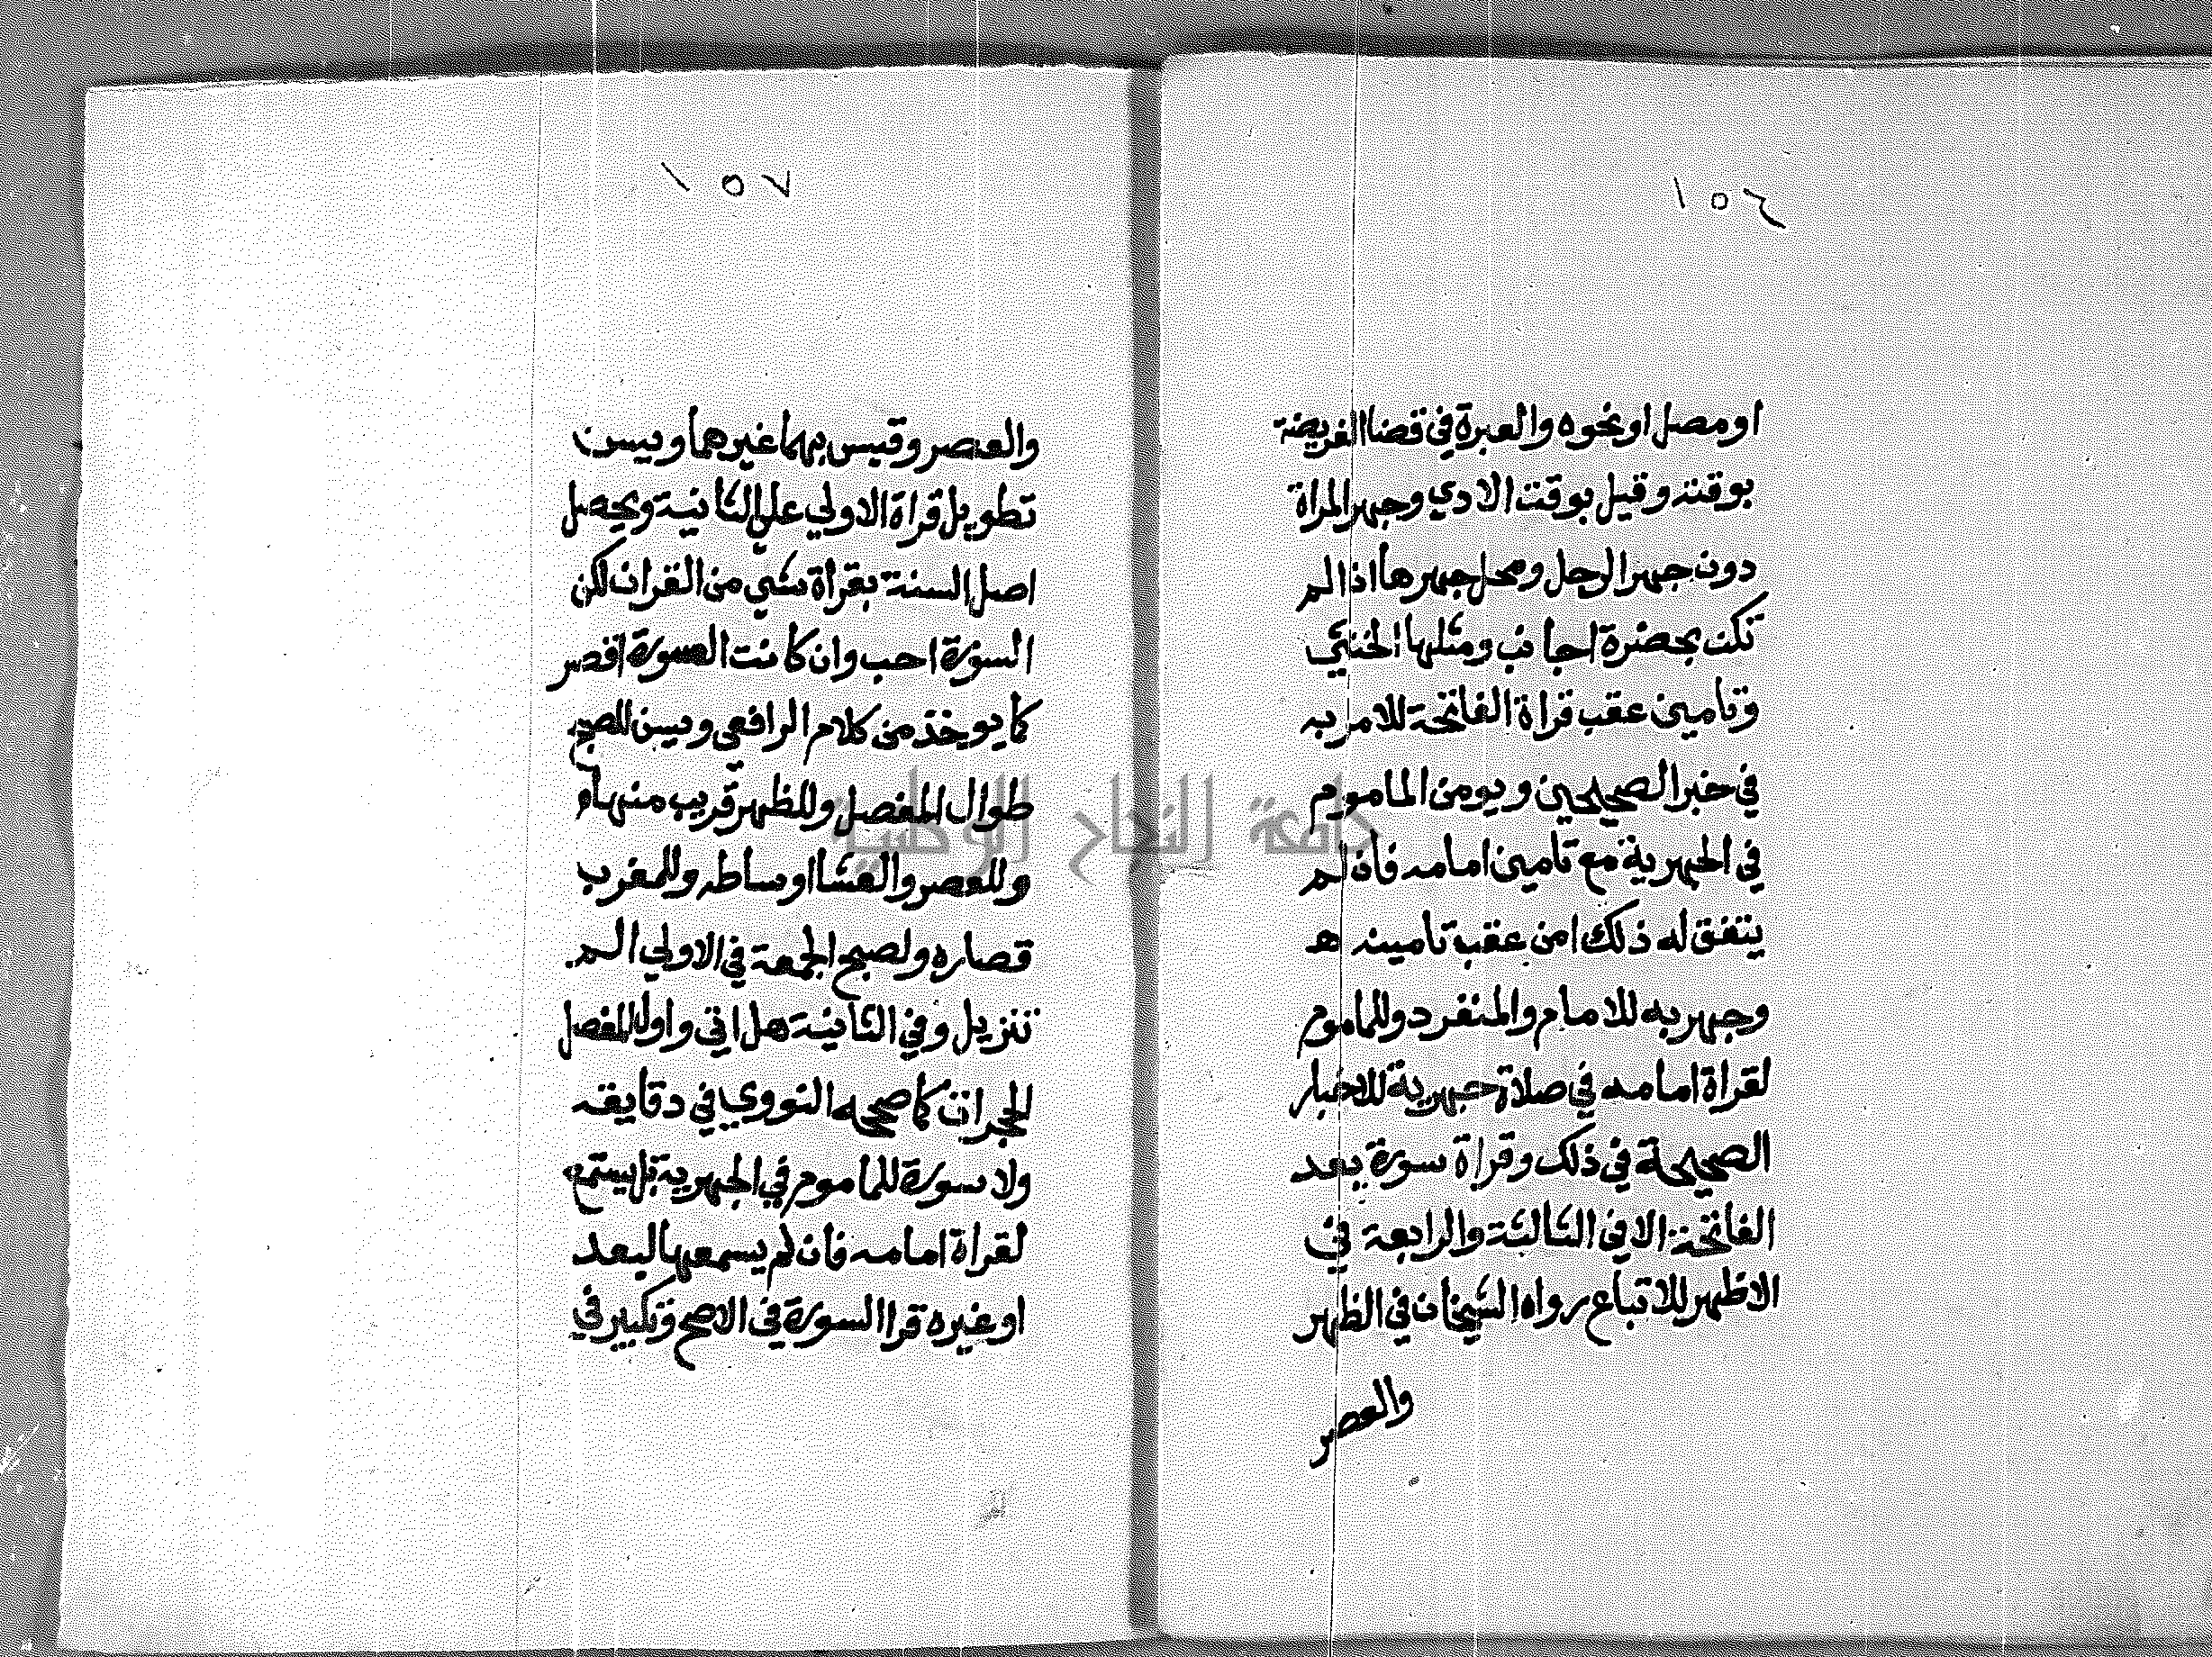 ١٥٦
او مصل او نحوه والعبرة في قضا الفريضة
بوقته وقيل بوقت الادي وجهر المراة
دون جهر الرجل ومحل جهرها اذا لم
تكن بحضرة اجانب ومثلها الخنثي
وتامين عقب قراة الفاتحة للامر به
في خبر الصحيحين ويومن الماموم
في الجهرية مع تامين امامه فان لم
يتفق له ذلك امن عقب تامينه ه
وجهر به للامام والمنفرد وللماموم
لقراة امامه في صلاة جهرية للاخبار
الصحيحة في ذلك وقراة سورة بعد
الفاتحة الا في الثالثة والرابعة في
الاظهر للاتباع رواه الشيخان في الظهر
والعصر
١٥٧
والعصر وقيس بهما غيرهما ويسن
تطويل قراة الاولي علي الثانية ويحصل
اصل السنة بقراة شي من القران لكن
السورة احب وان كانت السورة اقصر
كما يوخذ من كلام الرافعي ويسن للصبح
طوال المفصل وللظهر قريب منها و
وللعصر والعشا اوساطه وللمغرب
قصاره ولصبح الجمعة في الاولي الم
تنزيل وفي الثانية هل اتي واول المفصل
للحجرات كما صححه النووي في دقايقه
ولا سورة للماموم في الجهرية بل يستمع
لقراة امامه فان لم يسمعها لبعد
او غيره قرا السورة في الاصح وتكبير في
جامعة النجاح الوطنية